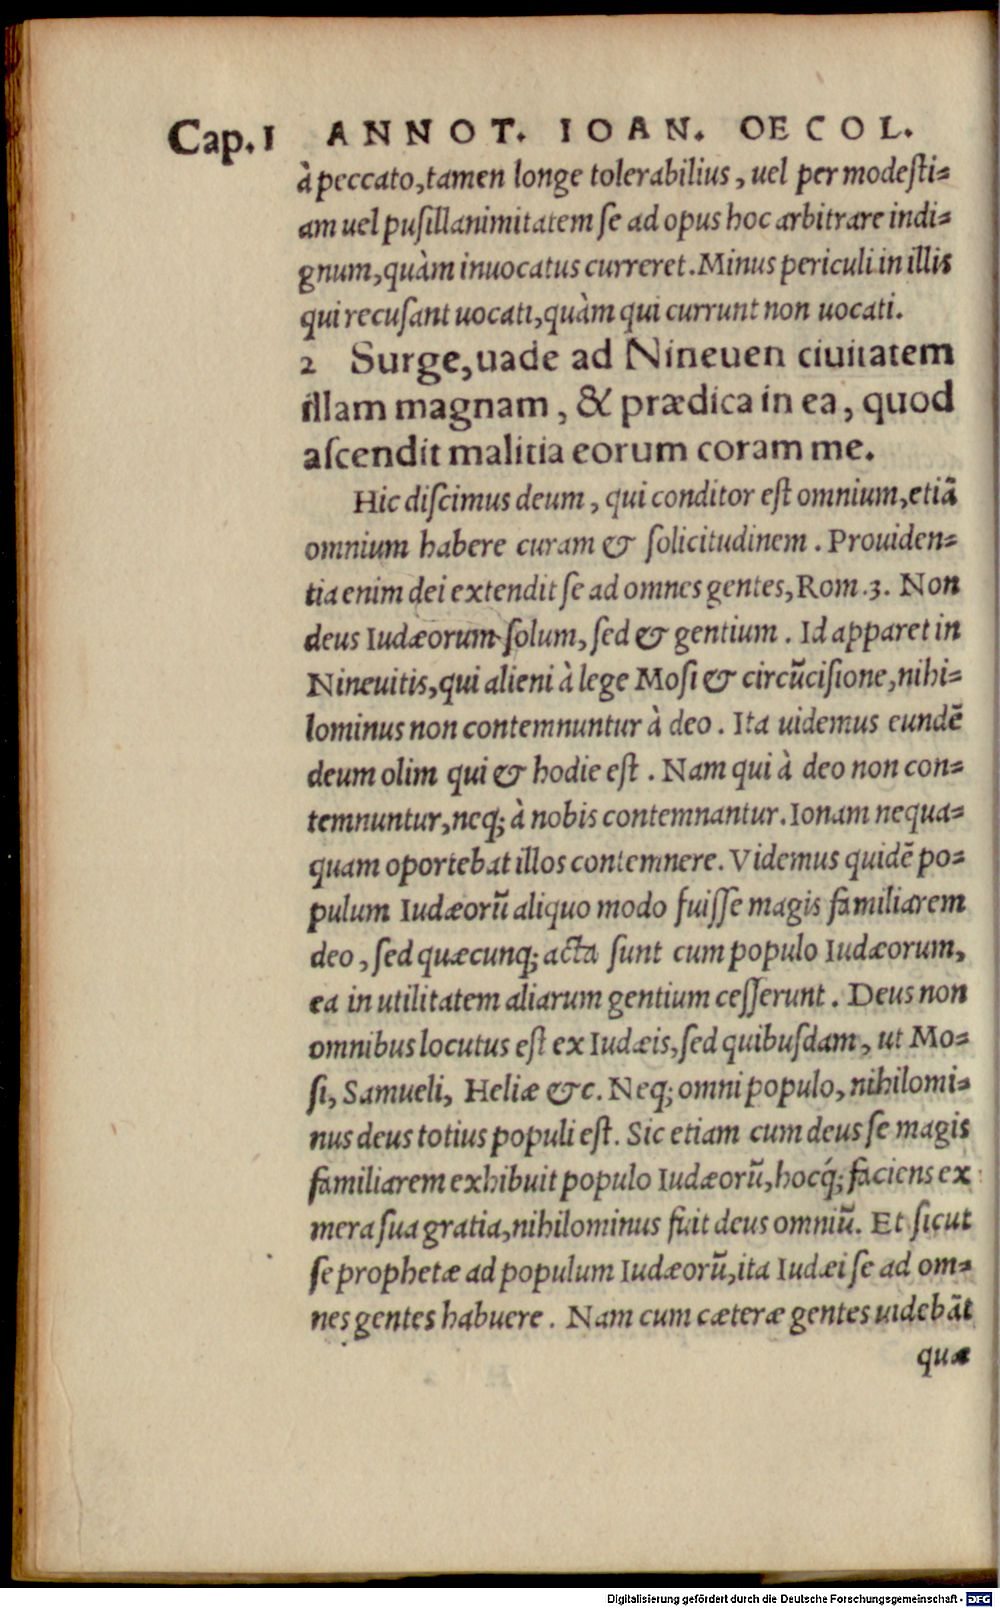 Cap.1 ANNOT. IOAN. OECOL.
à peccato, tamen longe tolerabilius, uel per modeſti⸗
am uel puſillanimitatem ſe ad opus hoc arbitrare indi⸗
gnum, quàm inuocatus curreret. Minus periculi in illis
qui recuſant uocati, quàm qui currunt non uocati.
2 Surge, uade ad Nineuen ciuitatem
illam magnam, & prædica in ea, quod
aſcendit malitia eorum coram me.
Hic diſcimus deum, qui conditor eſt omnium, etiã
omnium habere curam & ſolicitudinem. Prouiden⸗
tia enim dei extendit ſe ad omnes gentes, Rom.3. Non
deus Iudæorum ſolum, ſed & gentium. Id apparet in
Nineuitis, qui alieni à lege Moſi & circũciſione, nihi⸗
lominus non contemnuntur à deo. Ita uidemus eundẽ
deum olim qui & hodie eſt. Nam qui à deo non con⸗
temnuntur, neq; à nobis contemnantur. Ionam nequa⸗
quam oportebat illos contemnere. Videmus quidẽ po⸗
pulum Iudæorũ aliquo modo fuiſſe magis familiarem
deo, ſed quæcunq; acta ſunt cum populo Iudæorum,
ea in utilitatem aliarum gentium ceſſerunt. Deus non
omnibus locutus eſt ex Iudæis, ſed quibuſdam, ut Mo⸗
ſi, Samueli, Heliæ &c. Neq; omni populo, nihilomi⸗
nus deus totius populi eſt. Sic etiam cum deus ſe magis
familiarem exhibuit populo Iudæorũ, hocq́; faciens ex
mera ſua gratia, nihilominus fuit deus omniũ. Et ſicut
ſe prophetæ ad populum Iudæorũ, ita Iudæi ſe ad om⸗
nes gentes habuere. Nam cum cæteræ gentes uidebãt
quæ
Digitalisierung gefördert durch die Deutsche Forschungsgemeinschaft - DFG